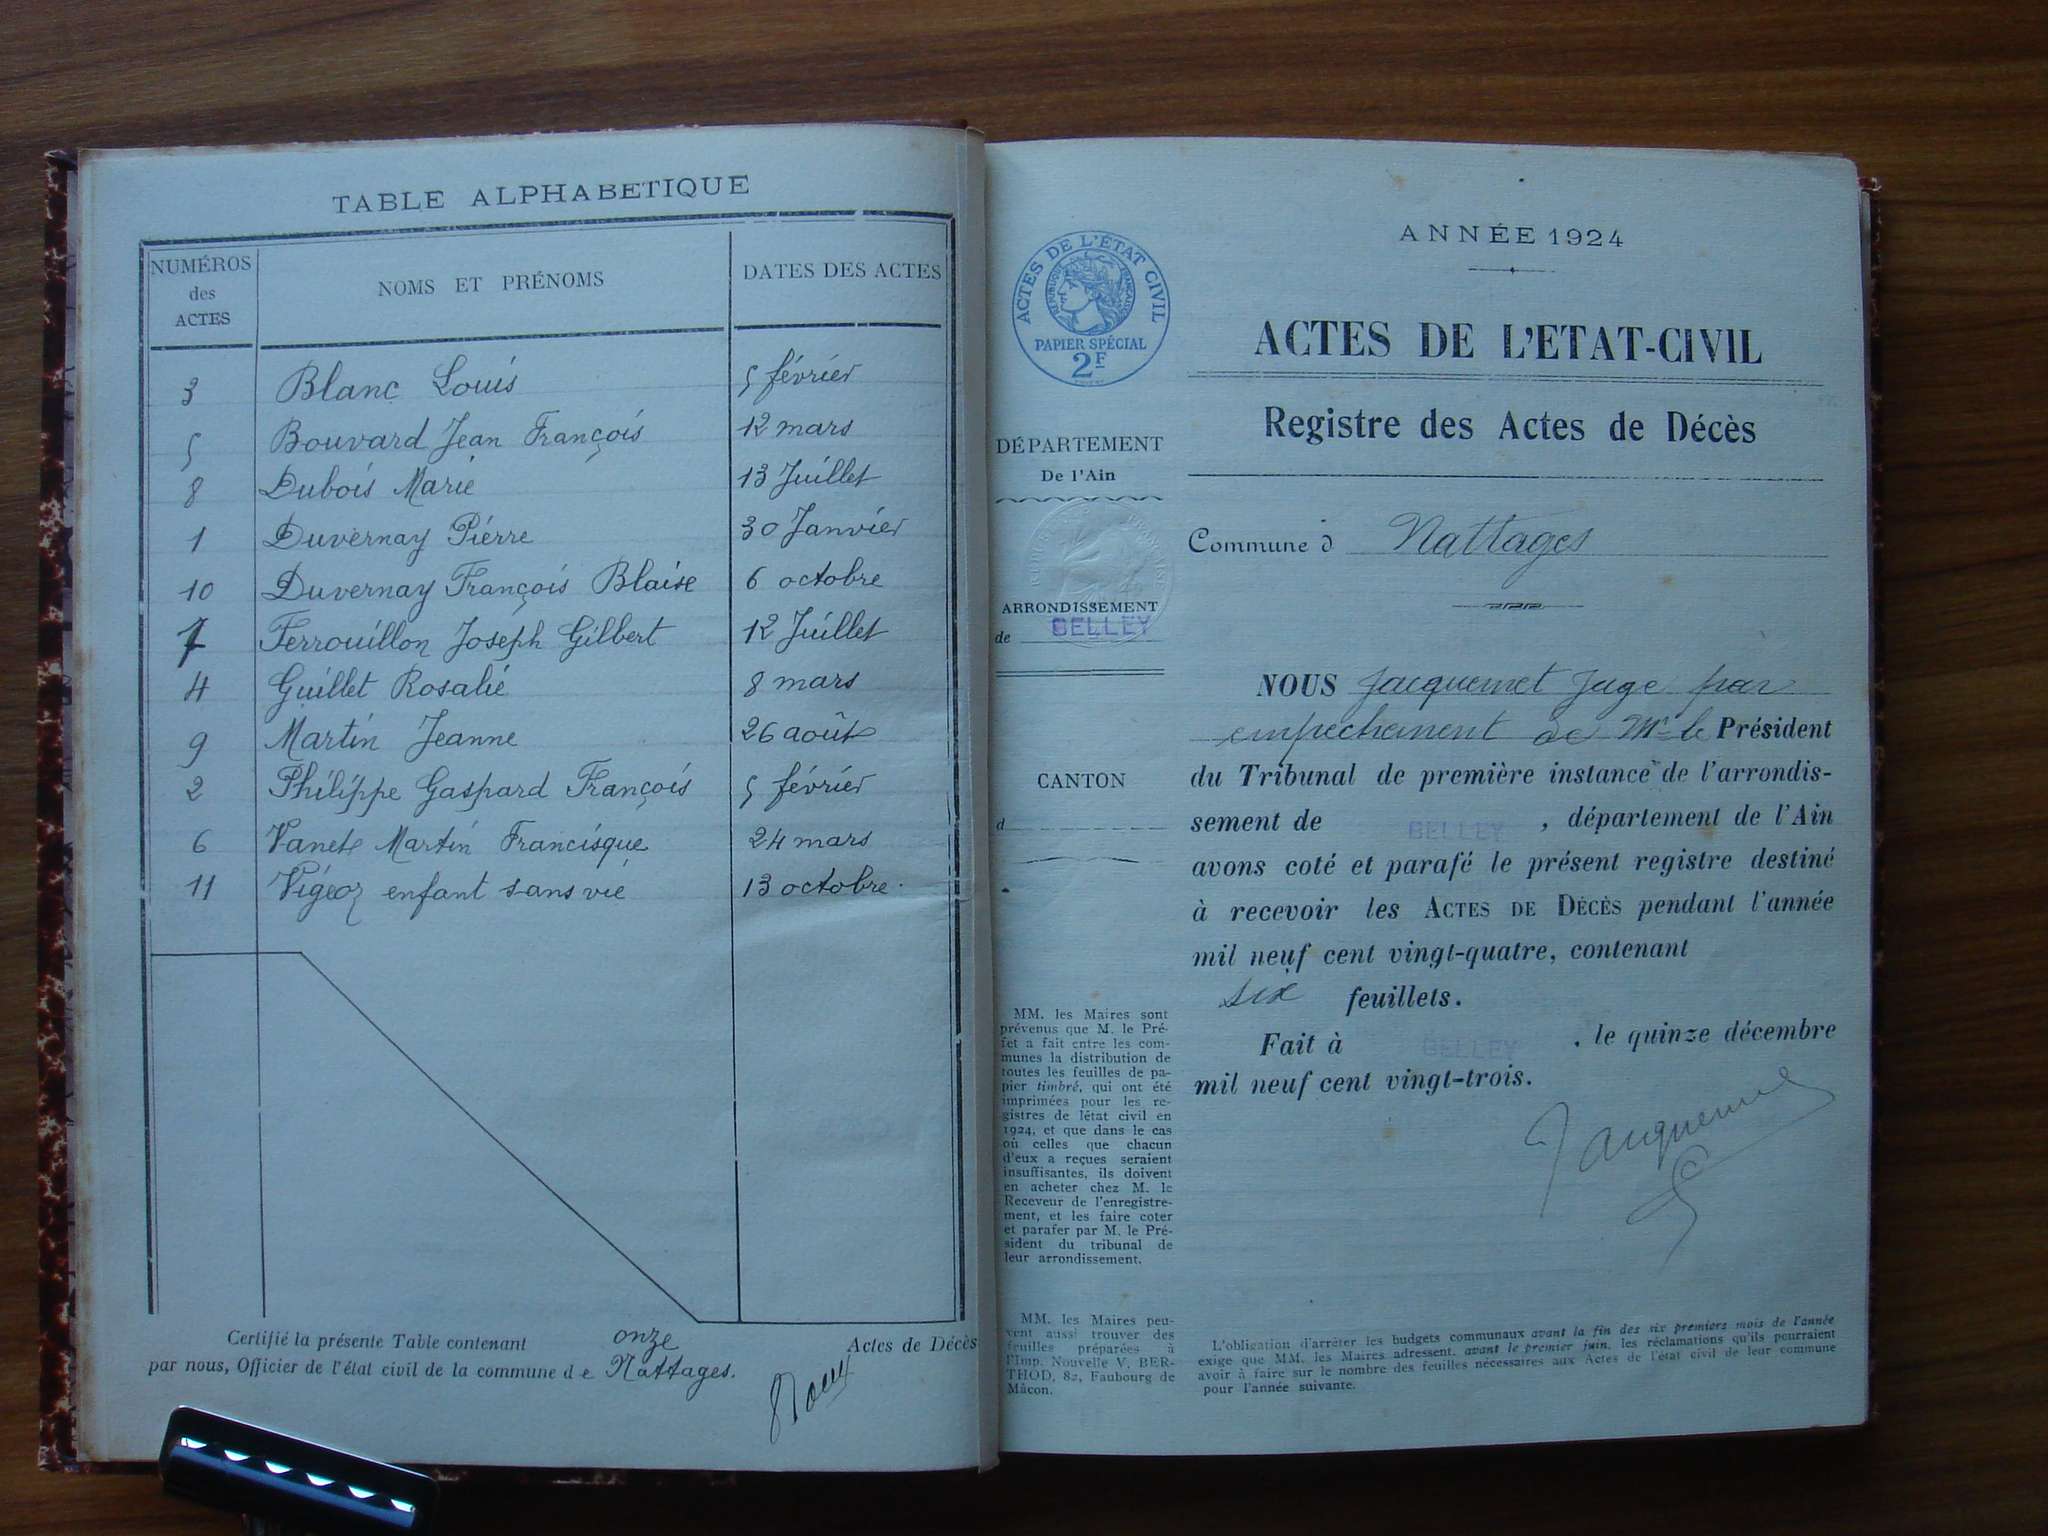 TABLE ALPHABETIQUE
NUMÉROS des ACTES NOMS ET PRÉNOMS DATES DES ACTES
3 Blanc Louis 5 février
5 Bouvard Jean François 12 mars
8 Dubois Marie 13 Juillet
1 Duvernay Pierre 30 Janvier
10 Duvernay François Blaise 6 octobre
7 Ferrouillon Joseph Gilbert 12 Juillet
4 Guillet Rosalie 8 mars
9 Martin Jeanne 26 août
2 Philippe Gaspard François 5 février
6 Vanet Martin Francisque 24 mars
11 Vigeoz enfant sans vie 13 octobre.
Certifié la présente Table contenant onze Actes de Décès
par nous, Officier de l'état civil de la commune de Nattages.
Roux
ACTES DE L'ÉTAT CIVIL
RÉPUBLIQUE FRANÇAISE
PAPIER SPÉCIAL
2F
DÉPARTEMENT
De l'Ain
ARRONDISSEMENT
de BELLEY
CANTON
d
MM. les Maires sont
prévenus que M. le Pré-
fet a fait entre les com-
munes la distribution de
toutes les feuilles de pa-
pier timbré, qui ont été
imprimées pour les re-
gistres de létat civil en
1924, et que dans le cas
où celles que chacun
d'eux a reçues seraient
insuffisantes, ils doivent
en acheter chez M. le
Receveur de l'enregistre-
ment, et les faire coter
et parafer par M. le Pré-
sident du tribunal de
leur arrondissement.
MM. les Maires peu-
vent aussi trouver des
feuilles préparées à
l'Imp. Nouvelle V. BER-
THOD, 82, Faubourg de
Mâcon.
ANNÉE 1924
ACTES DE L'ETAT-CIVIL
Registre des Actes de Décès
Commune d Nattages
NOUS Jacquemet Juge par
empechement de Mr le Président
du Tribunal de première instance de l'arrondis-
sement de BELLEY, département de l'Ain
avons coté et parafé le présent registre destiné
à recevoir les ACTES DE DÉCÈS pendant l'année
mil neuf cent vingt-quatre, contenant
six feuillets.
Fait à BELLEY, le quinze décembre
mil neuf cent vingt-trois.
Jacquemet
L'obligation d'arrêter les budgets communaux avant la fin des six premiers mois de l'année
exige que MM. les Maires adressent, avant le premier juin, les réclamations qu'ils pourraient
avoir à faire sur le nombre des feuilles nécessaires aux Actes de l'état civil de leur commune
pour l'année suivante.